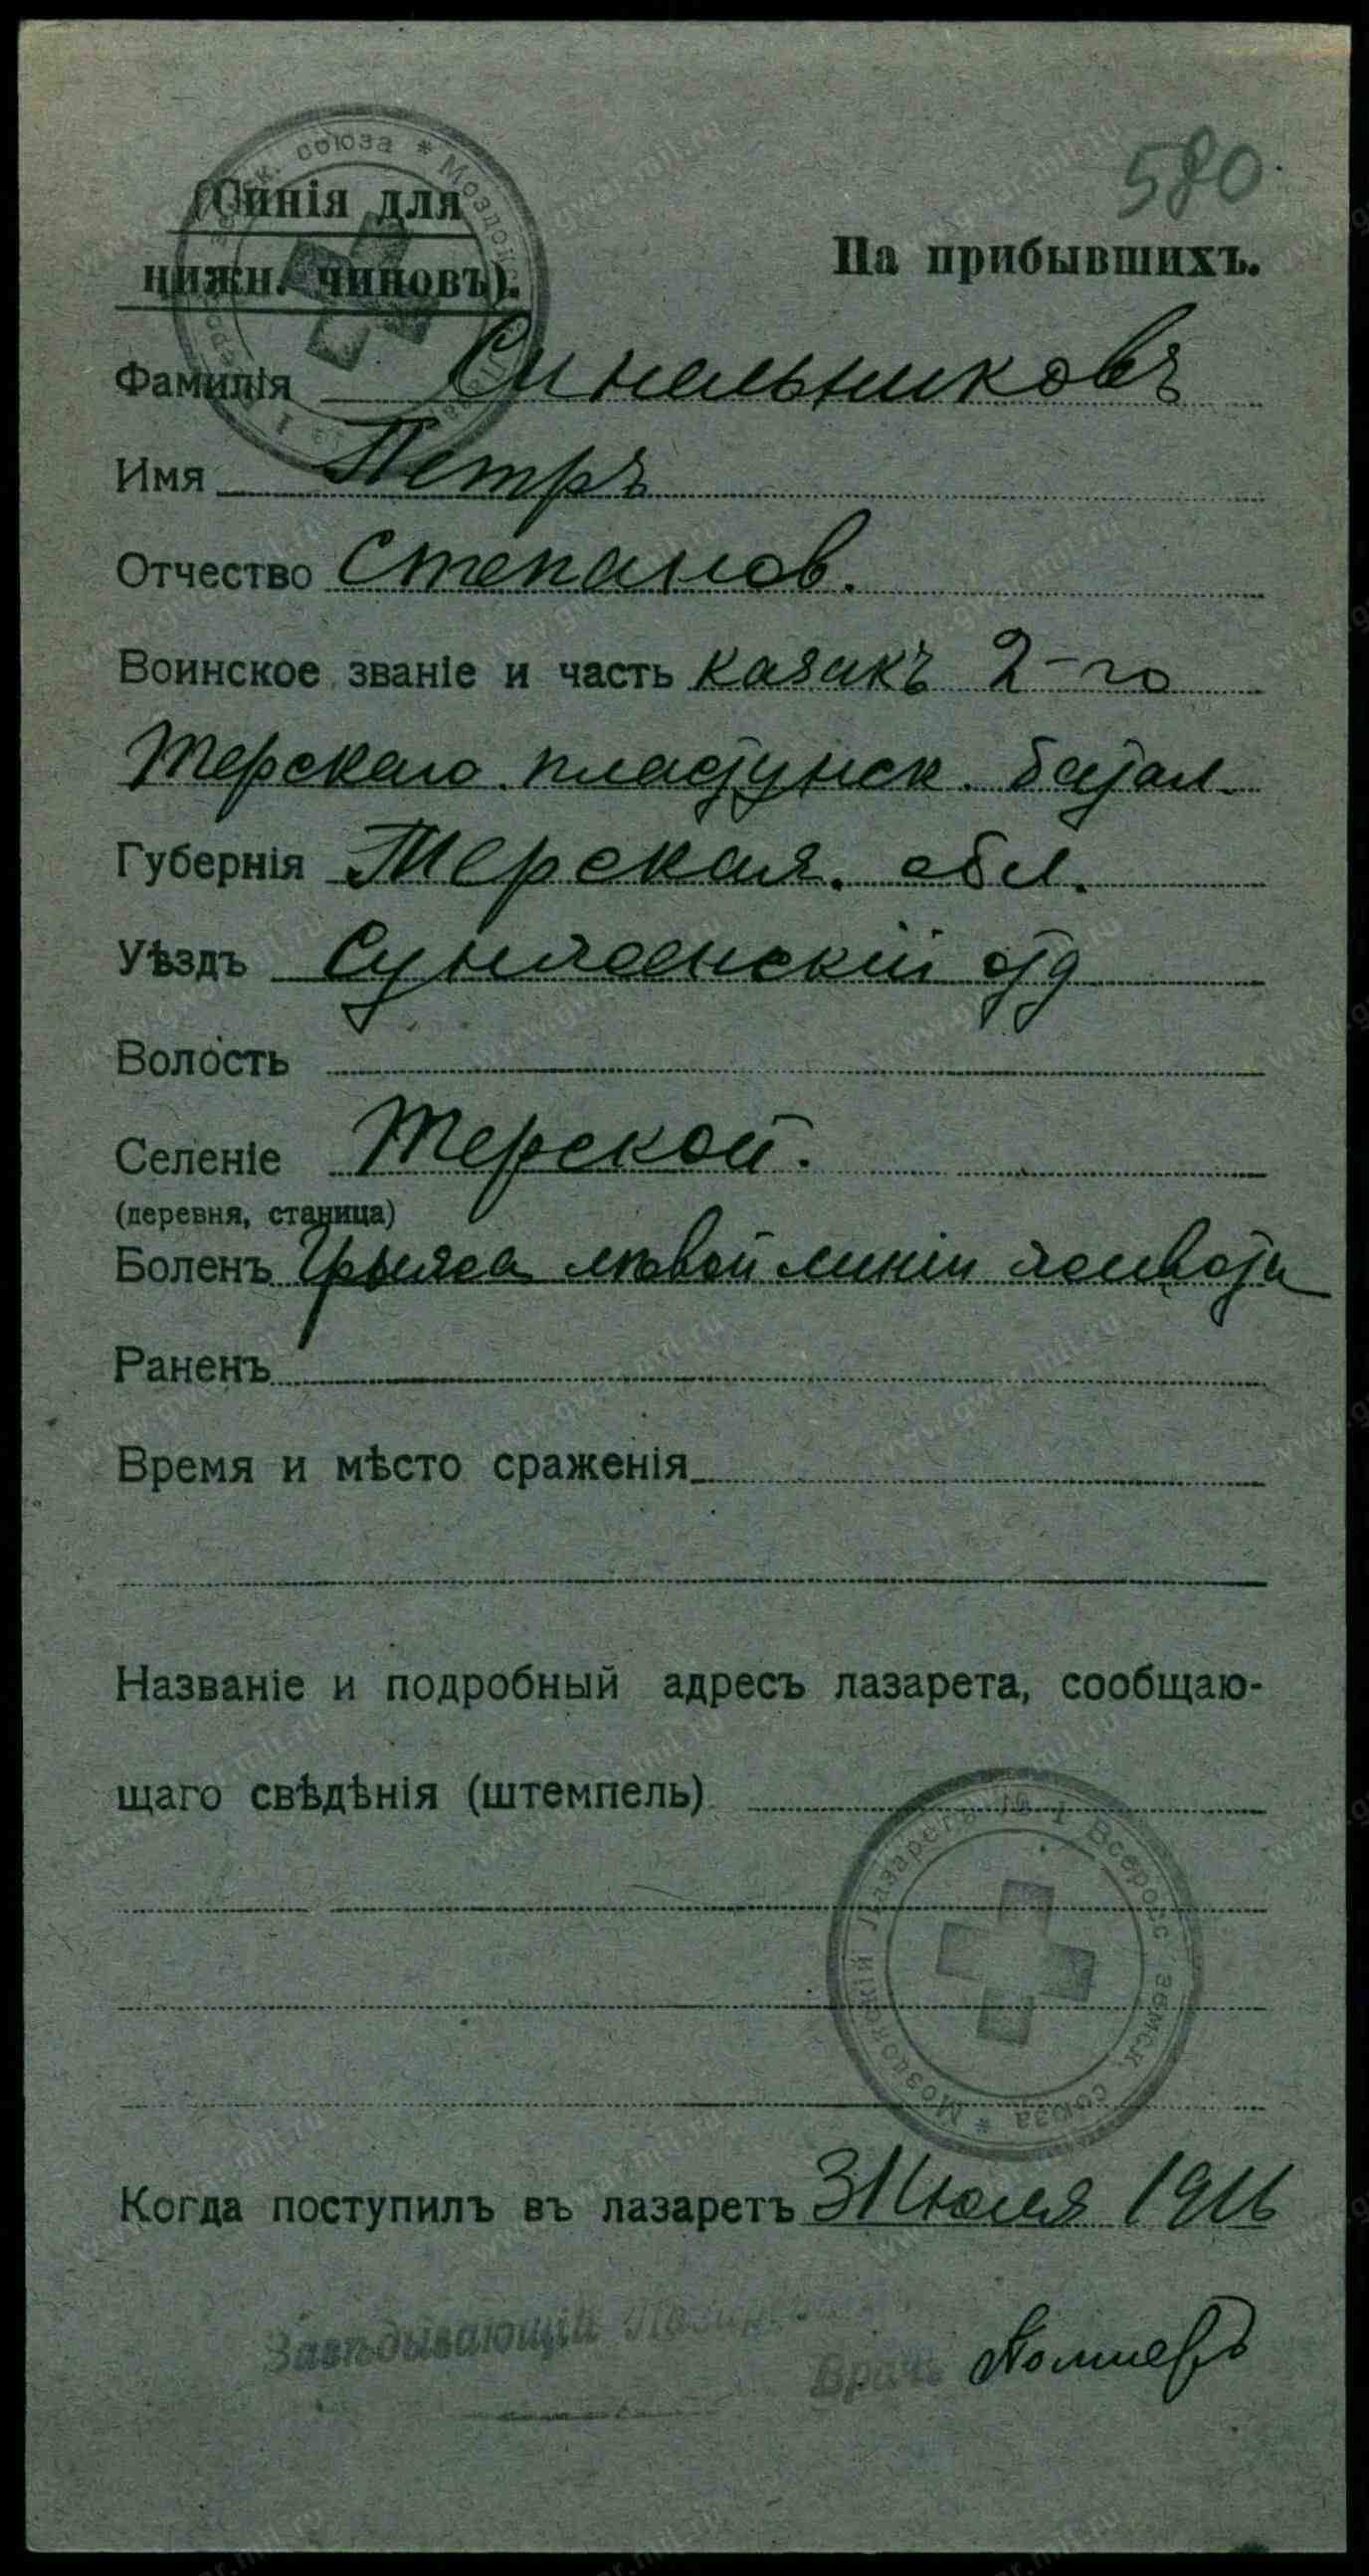 580
(Синія для
нижн. чиновъ).
На прибывшихъ.
Фамилія Синельниковъ
Имя Петръ
Отчество Степанов.
Воинское званіе и часть казакъ 2-го
Терскаго пластунск. батал.
Губернія Терская. обл.
Уѣздъ Сунженскій отд
Волость
Селеніе Терской.
(деревня, станица)
Боленъ Грыжа лѣвой линіи живота
Раненъ
Время и мѣсто сраженія
Названіе и подробный адресъ лазарета, сообщаю-
щаго свѣдѣнія (штемпель)
Моздокскій Лазаретъ № 1 Всеросс. земск. союза *
Когда поступилъ въ лазаретъ 31 Юля 1916
Завѣдывающій
Врачъ